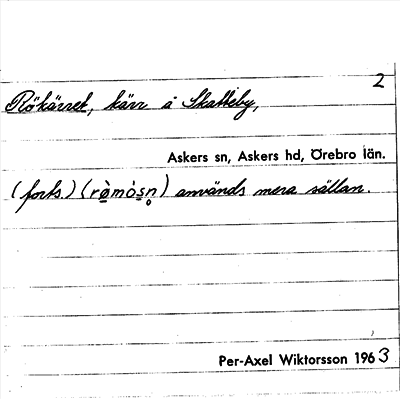 2
Rökärret, kärr å Skatteby,
Askers sn, Askers hd, Örebro län.
(forts.) (rø̀mòsn̥) används mera sällan.
Per-Axel Wiktorsson 1963